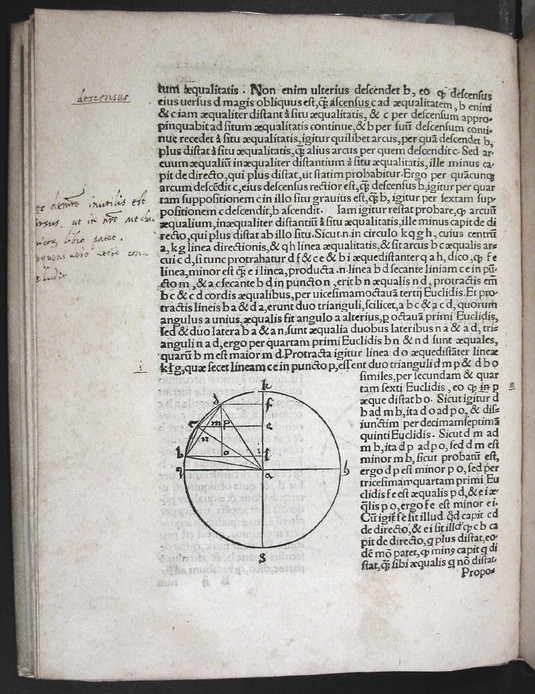 descensus
tum æqualitatis. Non enim ulterius descendet b, eo ꝙ descensus
eius uersus d magis obliquus est, ꝗ̃ ascensus c ad æqualitatem, b enim
& c iam æqualiter distant à situ æqualitatis, & c per descensum appro-
pinquabit ad situm æqualitatis continue, & b per suũ descensum conti-
nue recedet à situ æqualitatis, igitur quilibet arcus, per quẽ descendet b,
plus distat à situ æqualitatis, ꝗ̃ alius arcus per quem descendit c. Sed ar-
cuum æqualiũ inæqualiter distantium à situ æqualitatis, ille minus ca-
pit de directo, qui plus distat, ut statim probabitur. Ergo per quãcunꝗ
arcum descẽdit c, eius descensus rectior est, ꝗ̃ descensus b, igitur per quar
tam suppositionem c in illo situ grauius est, ꝗ̃ b, igitur per sextam sup-
positionem c descendit, b ascendit. Iam igitur restat probare, ꝙ arcuũ
æqualium, inæqualiter distantiũ à situ æqualitatis, ille minus capit de di
recto, qui plus distat ab illo situ. Sicut .n. in circulo k q g h, cuius centrũ
a, k g linea directionis, & q h linea æqualitatis, & sit arcus b c æqualis ar-
cui c d, si tunc protrahatur d f & c e & b i æquedistanter q a h, dico, ꝙ f e
linea, minor est ꝗ̃ e i linea, producta .n. linea b d secante liniam c e in pũ-
cto m, & a c secante b d in puncto n, erit b n æqualis n d, protractis em̃
b c & c d cordis æqualibus, per uicesimamoctauã tertij Euclidis. Et pro-
tractis lineis b a & d a, erunt duo trianguli, scilicet, a b c & a c d, quorum
angulus a unius, æqualis fit angulo a alterius, p octauã primi Euclidis,
sed & duo latera b a & a n, sunt æqualia duobus lateribus n a & a d, tri-
anguli n a d, ergo per quartam primi Euclidis b n & n d sunt æquales,
quarũ b m est maior m d. Protracta igitur linea d o æquedistãter lineæ
k f g, quæ secet lineam c e in puncto p, essent duo trianguli d m p & d b o
similes, per secundam & quar
tam sexti Euclidis, eo ꝙ in p
æque distat b o. Sicut igitur d
b ad m b, ita d o ad p o, & dis-
iunctim per decimamseptimã
quinti Euclidis. Sicut d m ad
m b, ita d p ad p o, sed d m est
minor m b, sicut probatũ est,
ergo d p est minor p o, sed per
tricesimamquartam primi Eu
clidis f e est æqualis p d, & e i æ-
q̃lis p o, ergo f e est minor e i.
Cũ igit̃ f e sit illud qd̃ capit c d
de directo, & e i sit illd̃ ꝙ c b ca
pit de directo, q plus distat, eo-
dẽ mõ patet, ꝙ minꝰ capit q di
stat, ꝗ̃ sibi æqualis q nõ distat.
Propo-
k
d
f
c
m
p
e
n
b
o
i
l
q
a
h
g